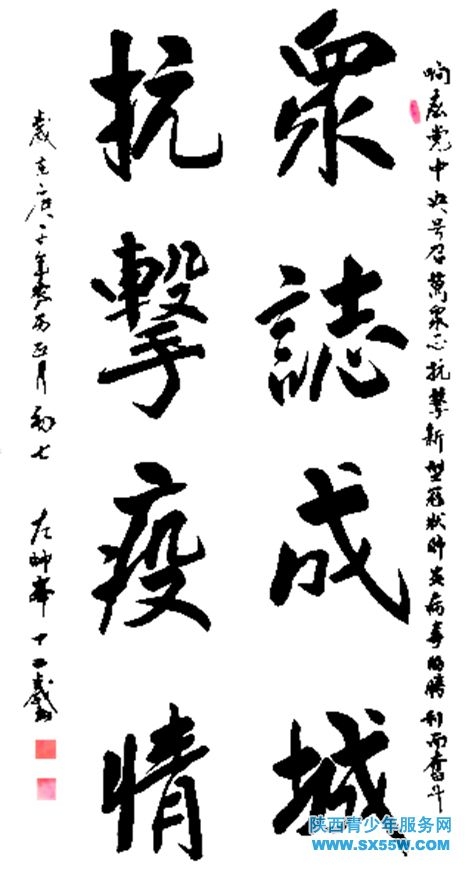 响应党中央号召万众一心抗击新型冠状肺炎病毒的胜利而奋斗
眾誌成城
抗擊疫情
歲在庚子年
月初七
十二歲
陕西青少年服务网
www.sx55w.com